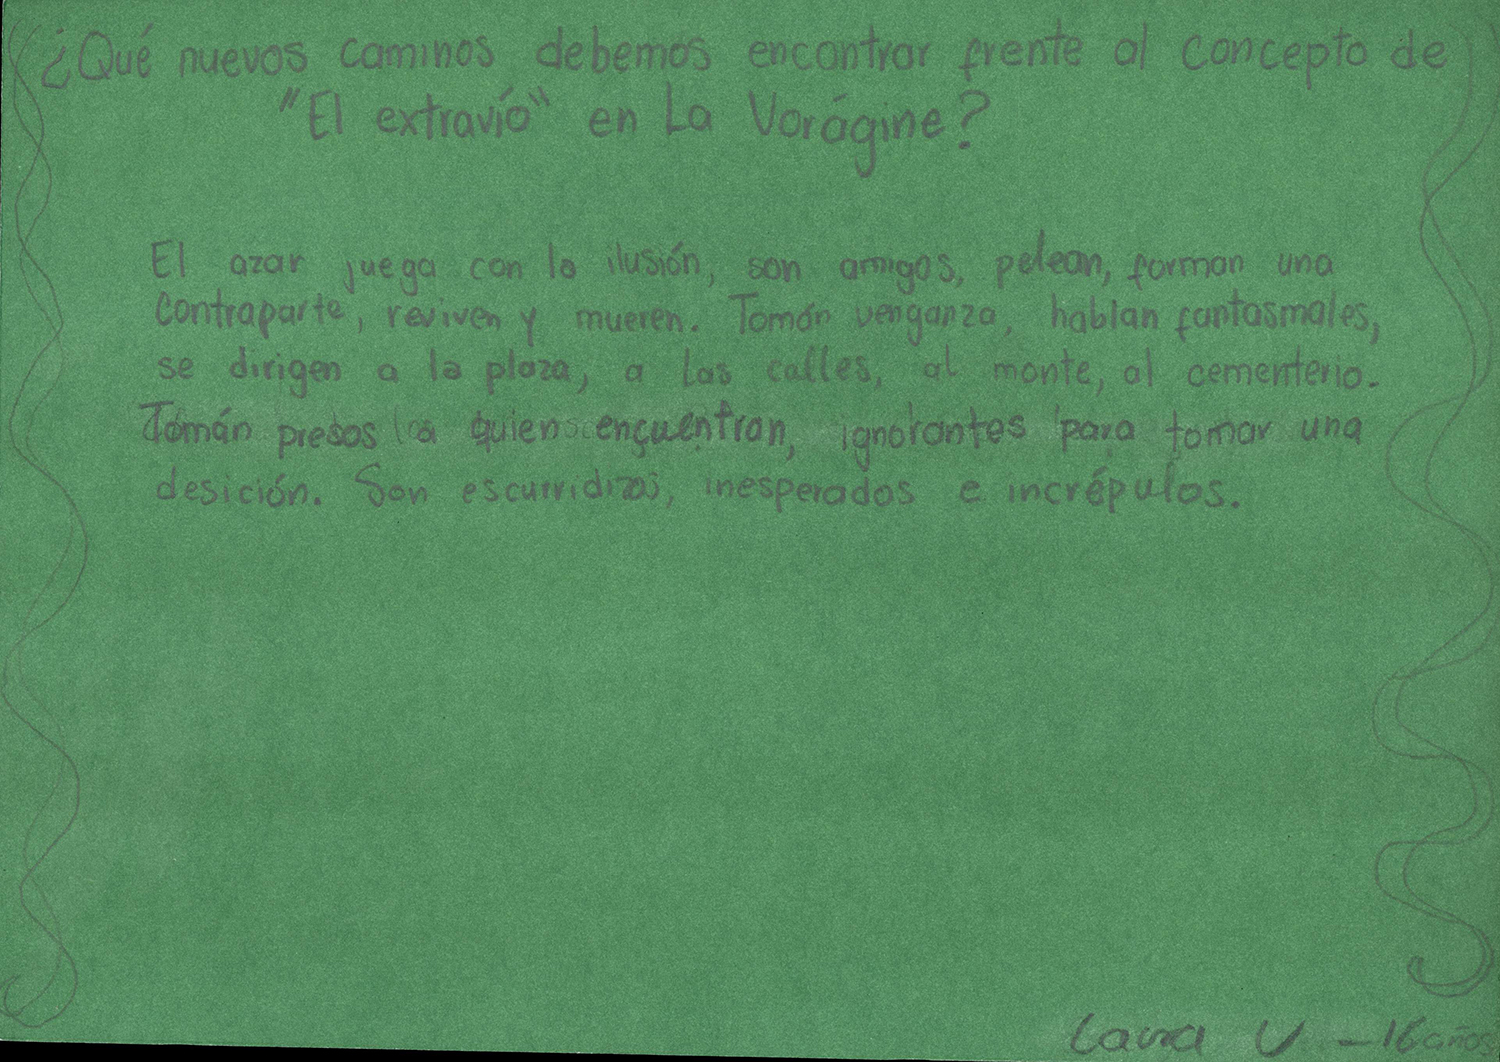 ¿Qué nuevos caminos debemos encontrar frente al concepto de
"El extravío" en La Vorágine?
El azar juega con la ilusión, son amigos, pelean, forman una
contraparte, reviven y mueren. Tomán venganza, hablan fantasmales,
se dirigen a la plaza, a las calles, al monte, al cementerio.
Tomán presos a quien encuentran, ignorantes para tomar una
desición. Son escurridizos, inesperados e incrépulos.
Laura V - 16 años